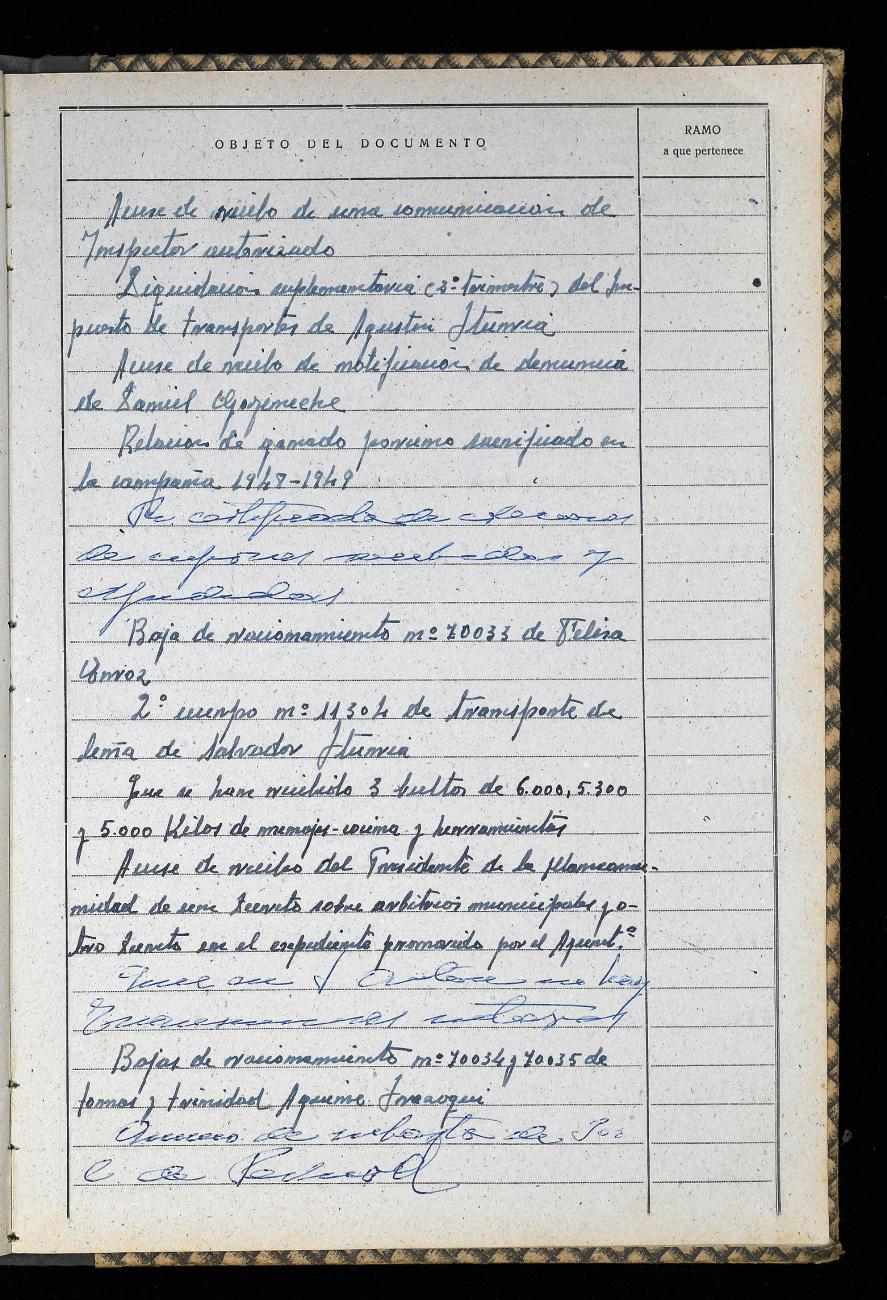 OBJETO DEL DOCUMENTO
RAMO
a que pertenece
Acuse de recibo de una comunicacion de
Inspector autorizado
Liquidacion suplementaria (3º trimestre) del Im-
puesto de transportes de Agustin Iturria
Acuse de recibo de notificacion de denuncia
de Daniel Goyeneche
Relacion de ganado porcino sacrificado en
la campaña 1948-1949
certificado de
de cupones recibidos y
Baja de racionamiento nº 70033 de Felisa
Unroz
2º cuerpo nº 11304 de transporte de
leña de Salvador Iturria
Que se han recibido 3 bultos de 6.000, 5.300
y 5.000 Kilos de menajes-cocina y herramientas
Acuse de recibo del Presidente de la Mancomu-
nidad de un Decreto sobre arbitrios municipales y o-
tro Decreto en el expediente promovido por el Ayunt.º
Que en no hay
Bajas de racionamiento nº 70034 y 70035 de
tomas y trinidad Aguirre
Anuncio de subasta de
C de